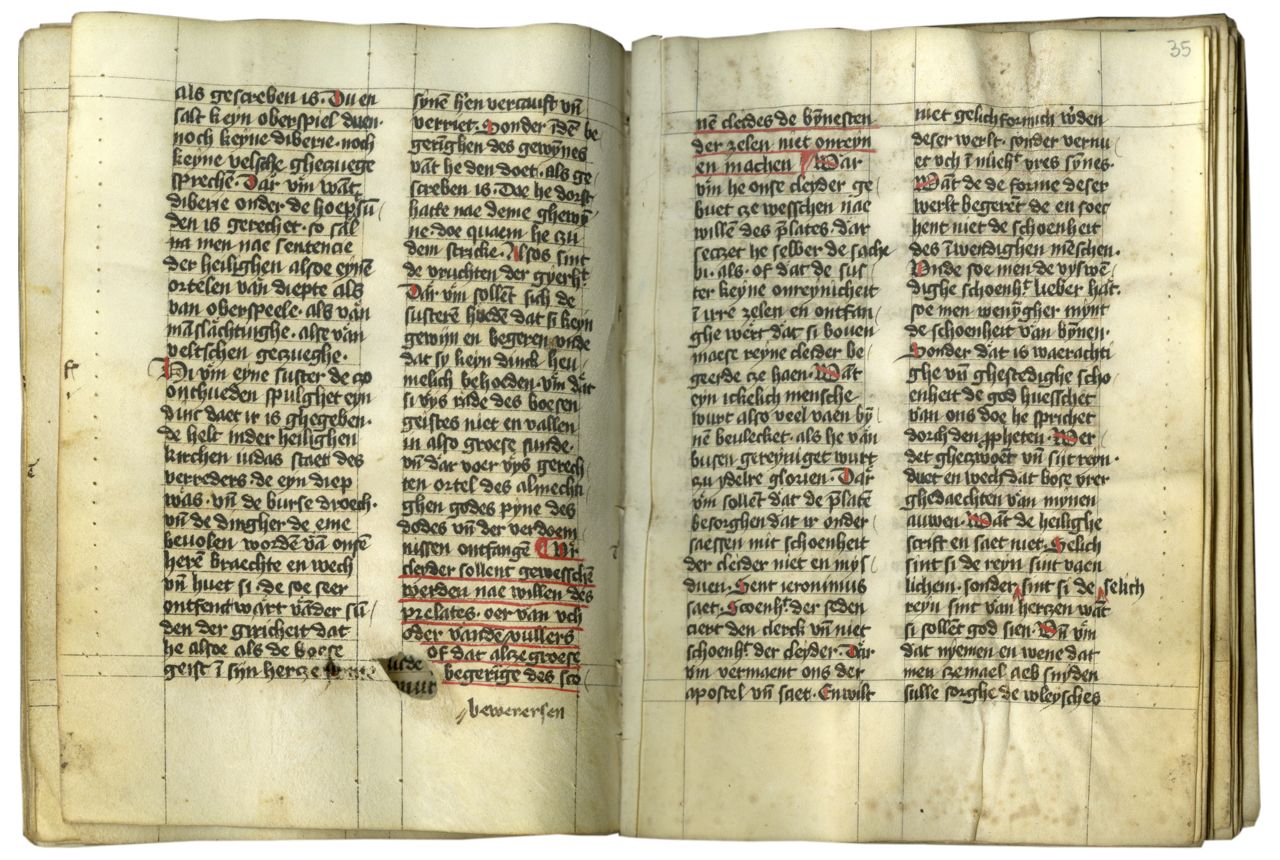 als gescreben is. Du en
salt keyn oberspiel duen.
noch keyne diberie. noch
keyne velsche ghezuege
sprechen. Dar vm want
diberie onder de hoep sū
den is gerechet. so sal
na men nae sentencie
der heilighen alsoe eynē
ortelen van diepte als
van oberspeele. als van
māslachtinghe. alse van
veltschen gezueghe.
Hi vm eyne suster de zo
onthueden spulghet eyn
dinc daet ir is ghegeben.
de helt inder heilighen
kirchen iudas staet des
verreders de eyn diep
was. vn̄ de burse droech.
vn̄ de dingher de eme
bevolen wordē vā onsē
herē braechte en wech
vn̄ huet si de soe seer
ontfenct wart vander sū
den der giricheit dat
he alsoe als de boese
geist ī syn hertze
synē hēn vercauft vn̄
verriet. Sonder īdē be
gerīghen des gewȳnes
vāt he den doet. als ge
screben is. Doe he dorst
hatte nae deme ghewȳ
ne. doe quaem he zu
dem stricke. Alsos sint
de vruchten der gyerht
Dar vm sollēt sich de
susterē hueden dat si keyn
gewyn en begeren vnde
dat sy keyn dinck heu
melich behoeden. vm dat
si vys rade des boesen
geistes niet en vallen
in also groese sunde.
vn̄ dar voer vys gerech
ten ortel des almechti
ghen godes pyne des
dodes vn̄ der verdoem
nissen ontfangē Wr
cleyder sollent gewesschē
werden nae willen des
prelates. oer van vch
oder vande vullers
of dat alze groese
begerige des sco
bewerersen
35
nē cleides de bȳnesten
der zelen niet onreyn
en machen War
vm he onse cleyder ge
buet cze wesschen nae
willē des p̄lates. dat
seczet he selber de sache
bi. als. of dat de sus
ter keyne onreynicheit
ī irre zelen en ontfan
ghe wert dat si bouen
maese reyne cleider be
geerde cze haen. Wāt
eyn ickelich mensche
wurt also veel vaen bȳ
nē beulecket. als he vān
busen gereyniget wurt
zu ydelre glorien. Dar
vm sollēt dat de p̄latē
besorghen dat ir onder
saessen mit schoenheit
der cleider niet en mys
duen. Sent ieronimus
saet. Scoenht. der seden
ciert den clerck vn̄ niet
schoenht der cleyder. Dar
vm vermaent ons der
apostel vn̄ saet. En wilt
niet gelichformich wden
deser werlt. sonder vernu
er vch ī nucht vres synes.
Wāt de de forme deser
werlt begerēt de en soec
hent niet de schoenheit
des īwerdighen mēschen.
Vnde soe men de vyswē
dighe schoenht lieber hat.
soe men wenygher mynt
de schoenheit van bȳnen.
Sonder dat is waerachti
ghe vn̄ ghestedighe scho
enheit de god huesschet
van ons doe he sprichet
dorch den p̄pheten. Wer
det gheczwoēt vn̄ sijt reyn.
duet en wech dat bose vrer
ghedaechten van mynen
auwen. Wāt de heilighe
scrift en saet niet. Selich
sint si de reyn sint vaen
lichem. sonder sint si de selich
reyn sint van hertzen wāt
si sollēt god sien. Vn̄ vm
dat nyemen en wene dat
men czemael aeb snyden
sulle sorghe de vleysches